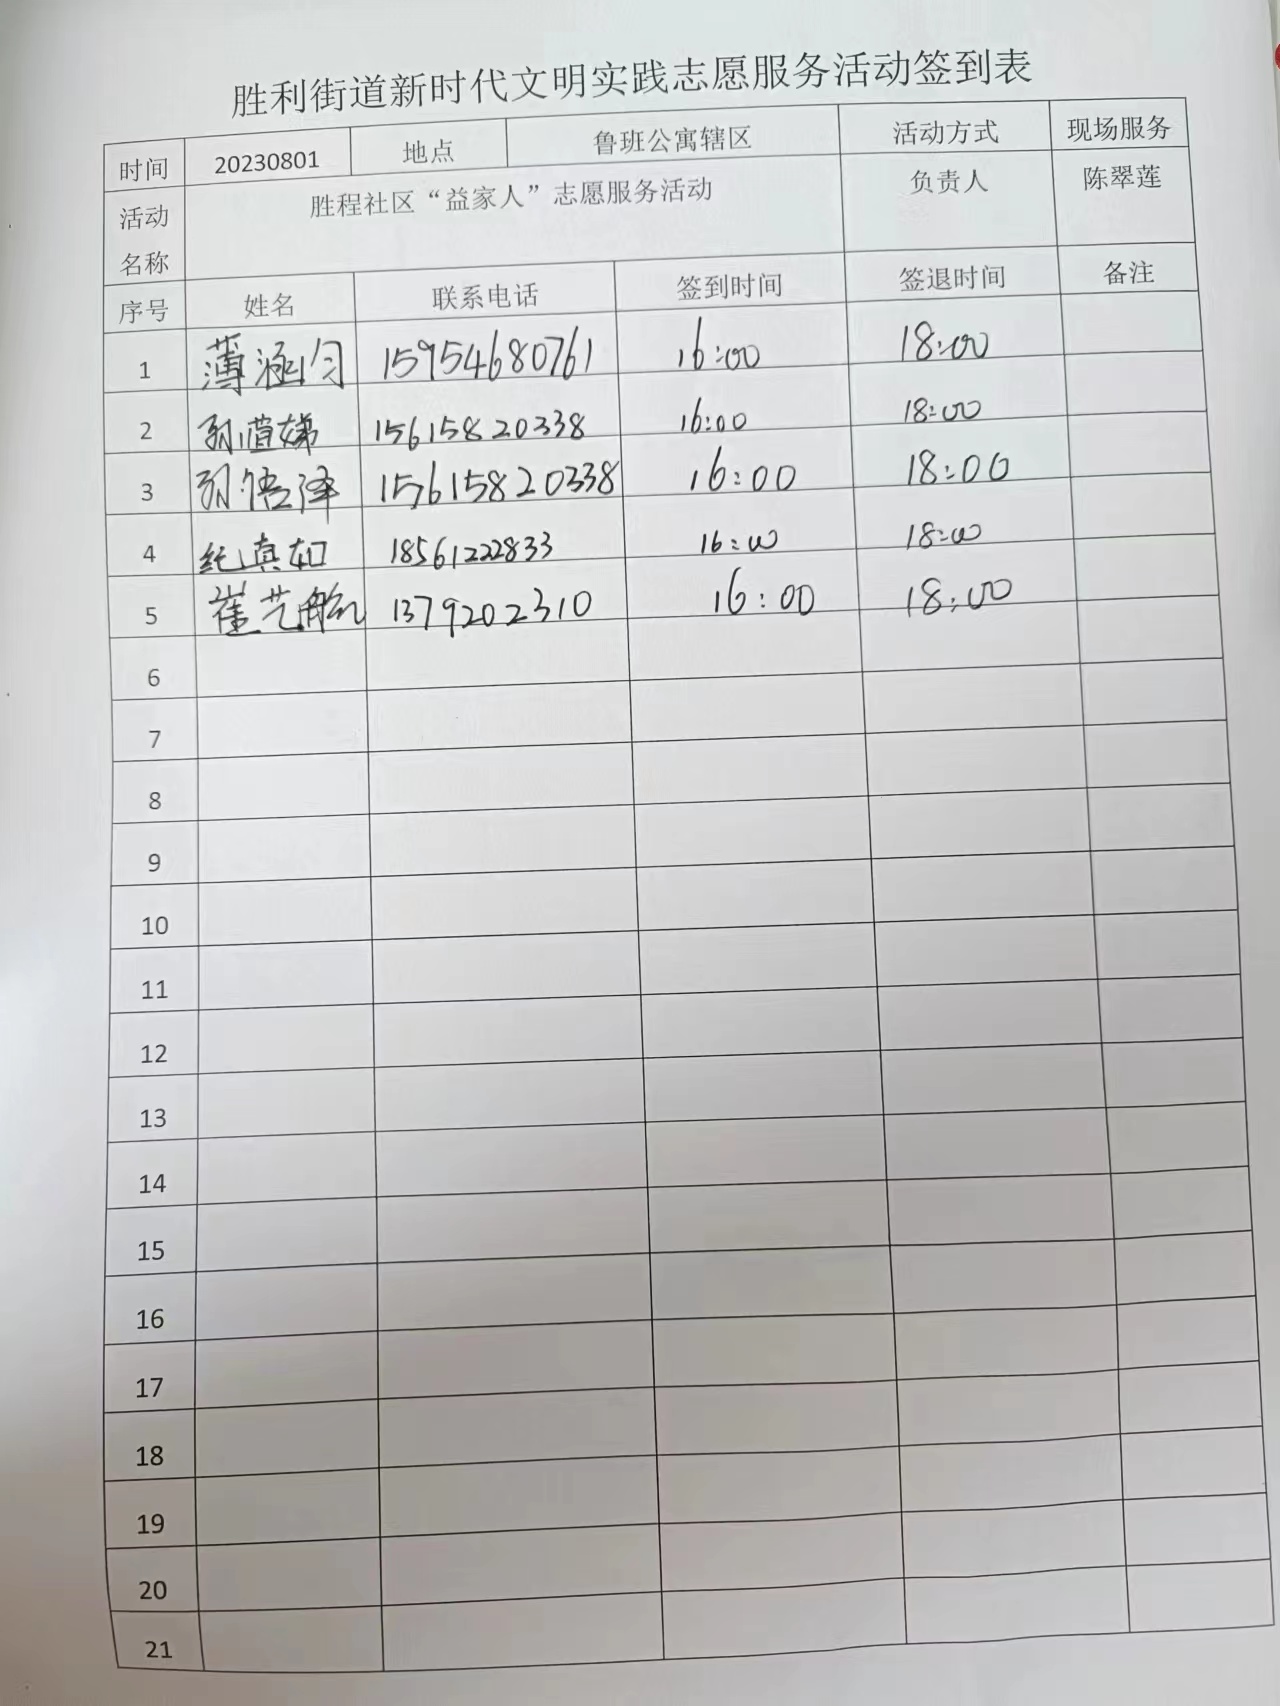 胜利街道新时代文明实践志愿服务活动签到表
时间 20230801 地点 鲁班公寓辖区 活动方式 现场服务
活动名称 胜程社区“益家人”志愿服务活动 负责人 陈翠莲
序号 姓名 联系电话 签到时间 签退时间 备注
1 薄涵匀 15954680761 16:00 18:00
2 孙萱娣 15615820338 16:00 18:00
3 孙悟泽 15615820338 16:00 18:00
4 纪真如 18561222833 16:00 18:00
5 崔艺航 1379202310 16:00 18:00
6
7
8
9
10
11
12
13
14
15
16
17
18
19
20
21